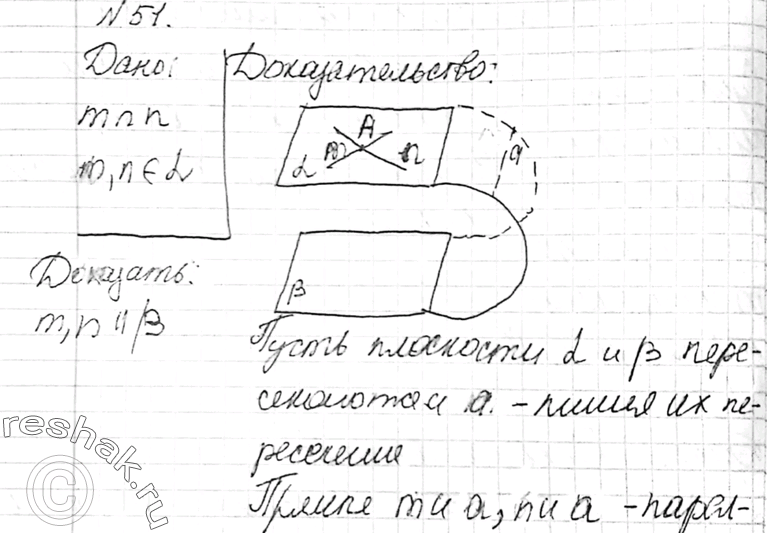 N 51.
Дано:
m ∩ n
m, n ∈ α
Доказать:
m, n || β
Доказательство:
A
m n
α
a
β
Пусть плоскости α и β пере-
секаются a. - линия их пе-
ресечение
Прямые m и a, n и a - парал-
reshak.ru